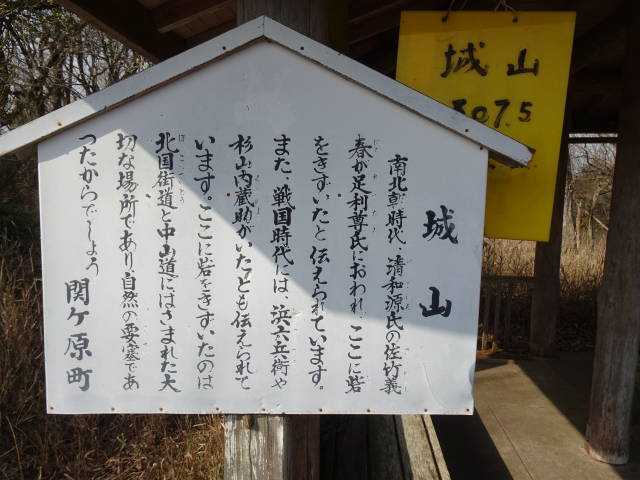 城山
南北朝時代、清和源氏の佐竹義
春が足利尊氏におわれ、ここに砦
をきずいたと伝えられています。
また、戦国時代には、浜六兵衛や
杉山内蔵助がいたとも伝えられて
います。ここに砦をきずいたのは
北国街道と中山道にはさまれた大
切な場所であり、自然の要塞であ
ったからでしょう
関ケ原町
城山
307.5